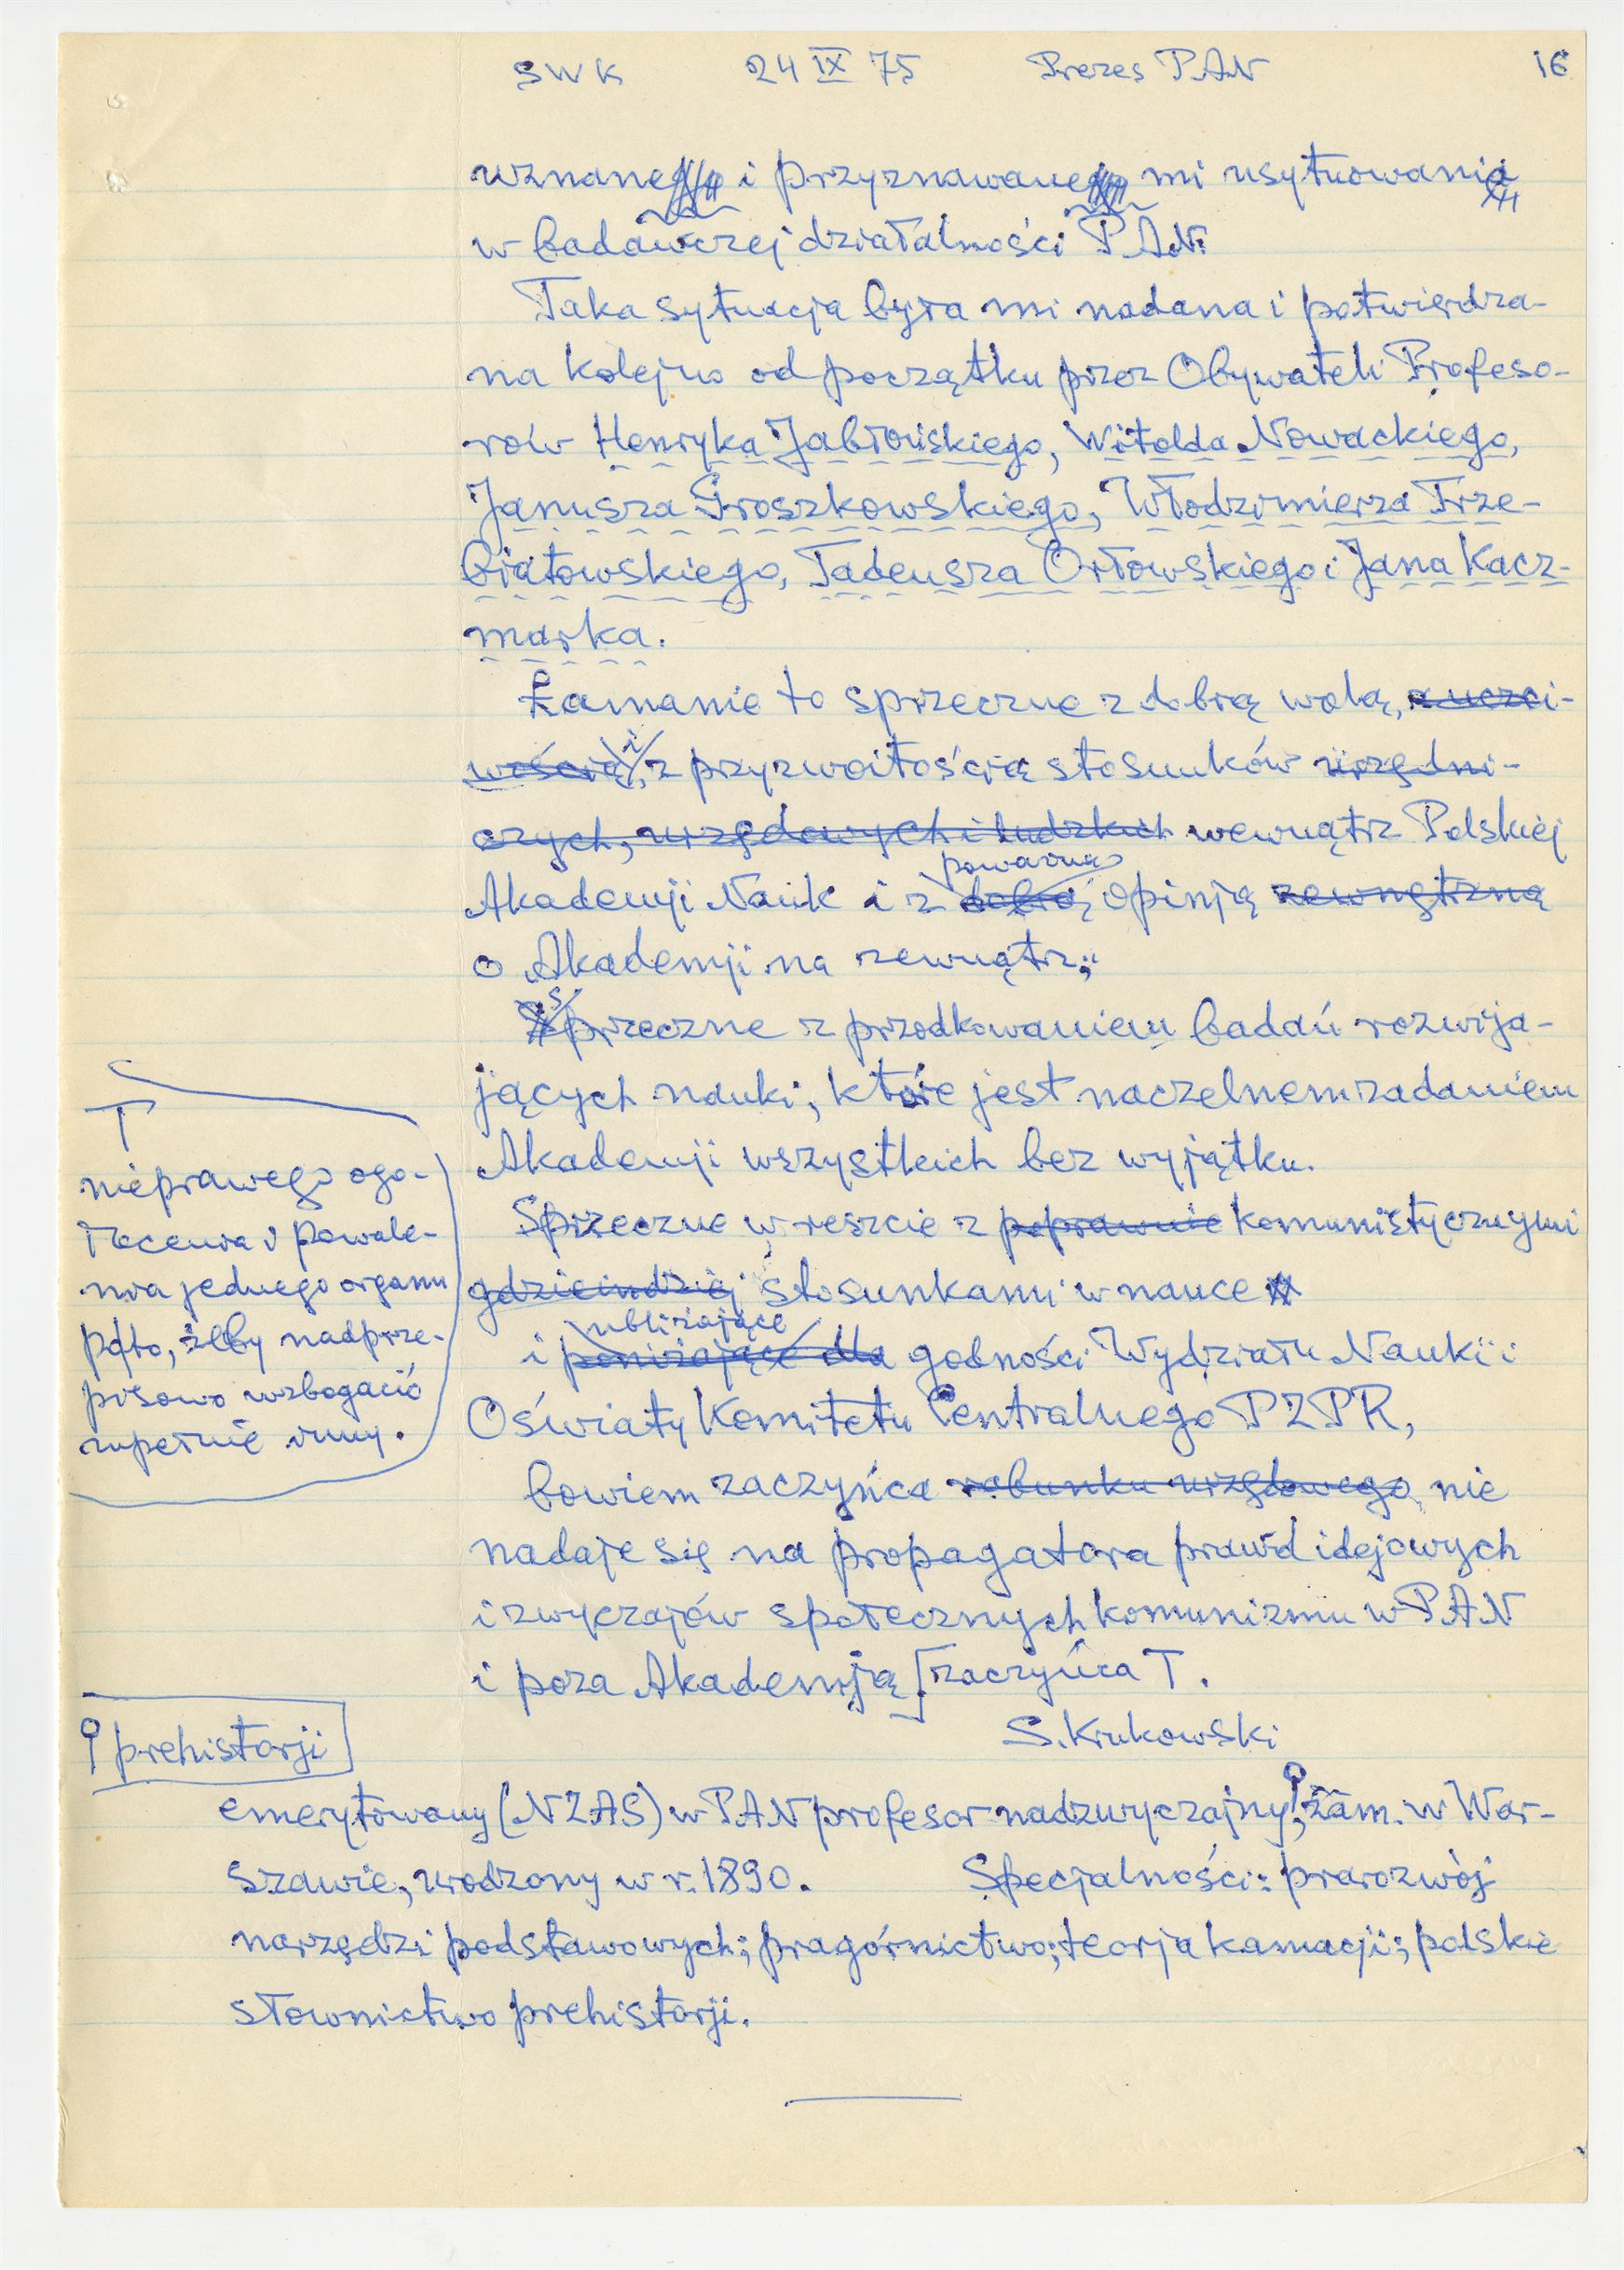 SWK 24 IX 75 Prezes PAN 16
uznanego i przyznawanego mi usytuowania
w badawczej działalności PAN.
Taka sytuacja była mi nadana i potwierdza-
na kolejno od początku przez Obywateli Profeso-
rów Henryka Jabłońskiego, Witolda Nowackiego,
Janusza Groszkowskiego, Włodzimierza Trze-
biatowskiego, Tadeusza Orłowskiego i Jana Kacz-
marka.
Łamanie to sprzeczne z dobrą wolą, z uczci-
wością, i z przyzwoitością stosunków urzędni-
czych, urzędowych i ludzkich wewnątrz Polskiej
poważną
Akademji Nauk i z dobrą opinją zewnętrzną
o Akademji na zewnątrz;
sprzeczne z przodkowaniem badań rozwija-
jących nauki, które jest naczelnem zadaniem
Akademji wszystkich bez wyjątku.
Sprzeczne wreszcie z poprawnie komunistycznymi
gdzieindziej stosunkami w nauce
ubliżające
i poniżające dla godności Wydziału Nauki i
Oświaty Komitetu Centralnego PZPR,
bowiem zaczyńca rabunku urzędowego nie
nadaje się na propagatora prawd idejowych
i zwyczajów społecznych komunizmu w PAN
i poza Akademją [zaczyńca T.
S. Krukowski
T
nieprawego ogo-
łocenia i powale-
nia jednego organu
poto, żeby nadprze-
pisowo wzbogacić
zupełnie inny.
prehistorji
emerytowany (NZAS) w PAN profesor nadzwyczajny, zam. w War-
szawie, urodzony w r. 1890. Specjalności: prarozwój
narzędzi podstawowych; pragórnictwo; teorja kamacji; polskie
słownictwo prehistorji.